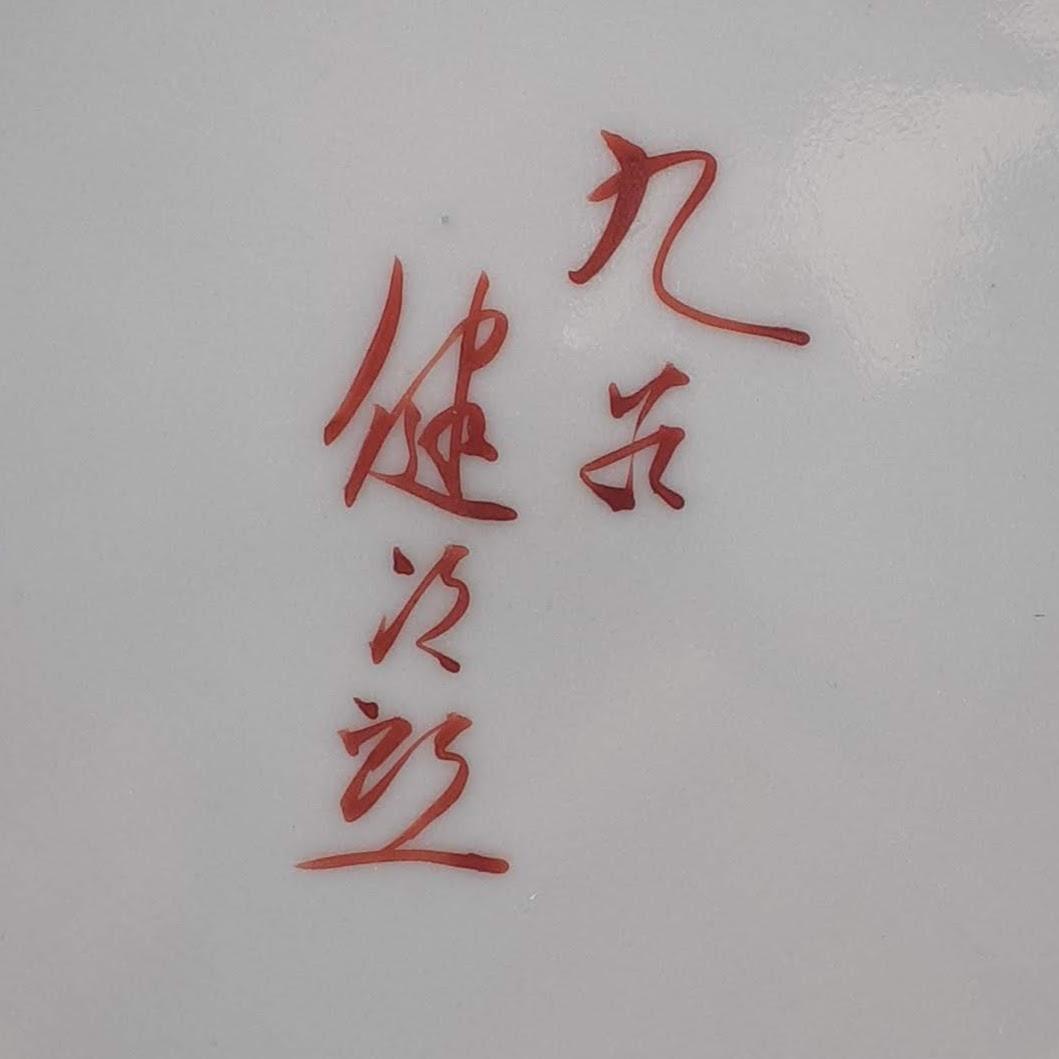 九谷
健次郎